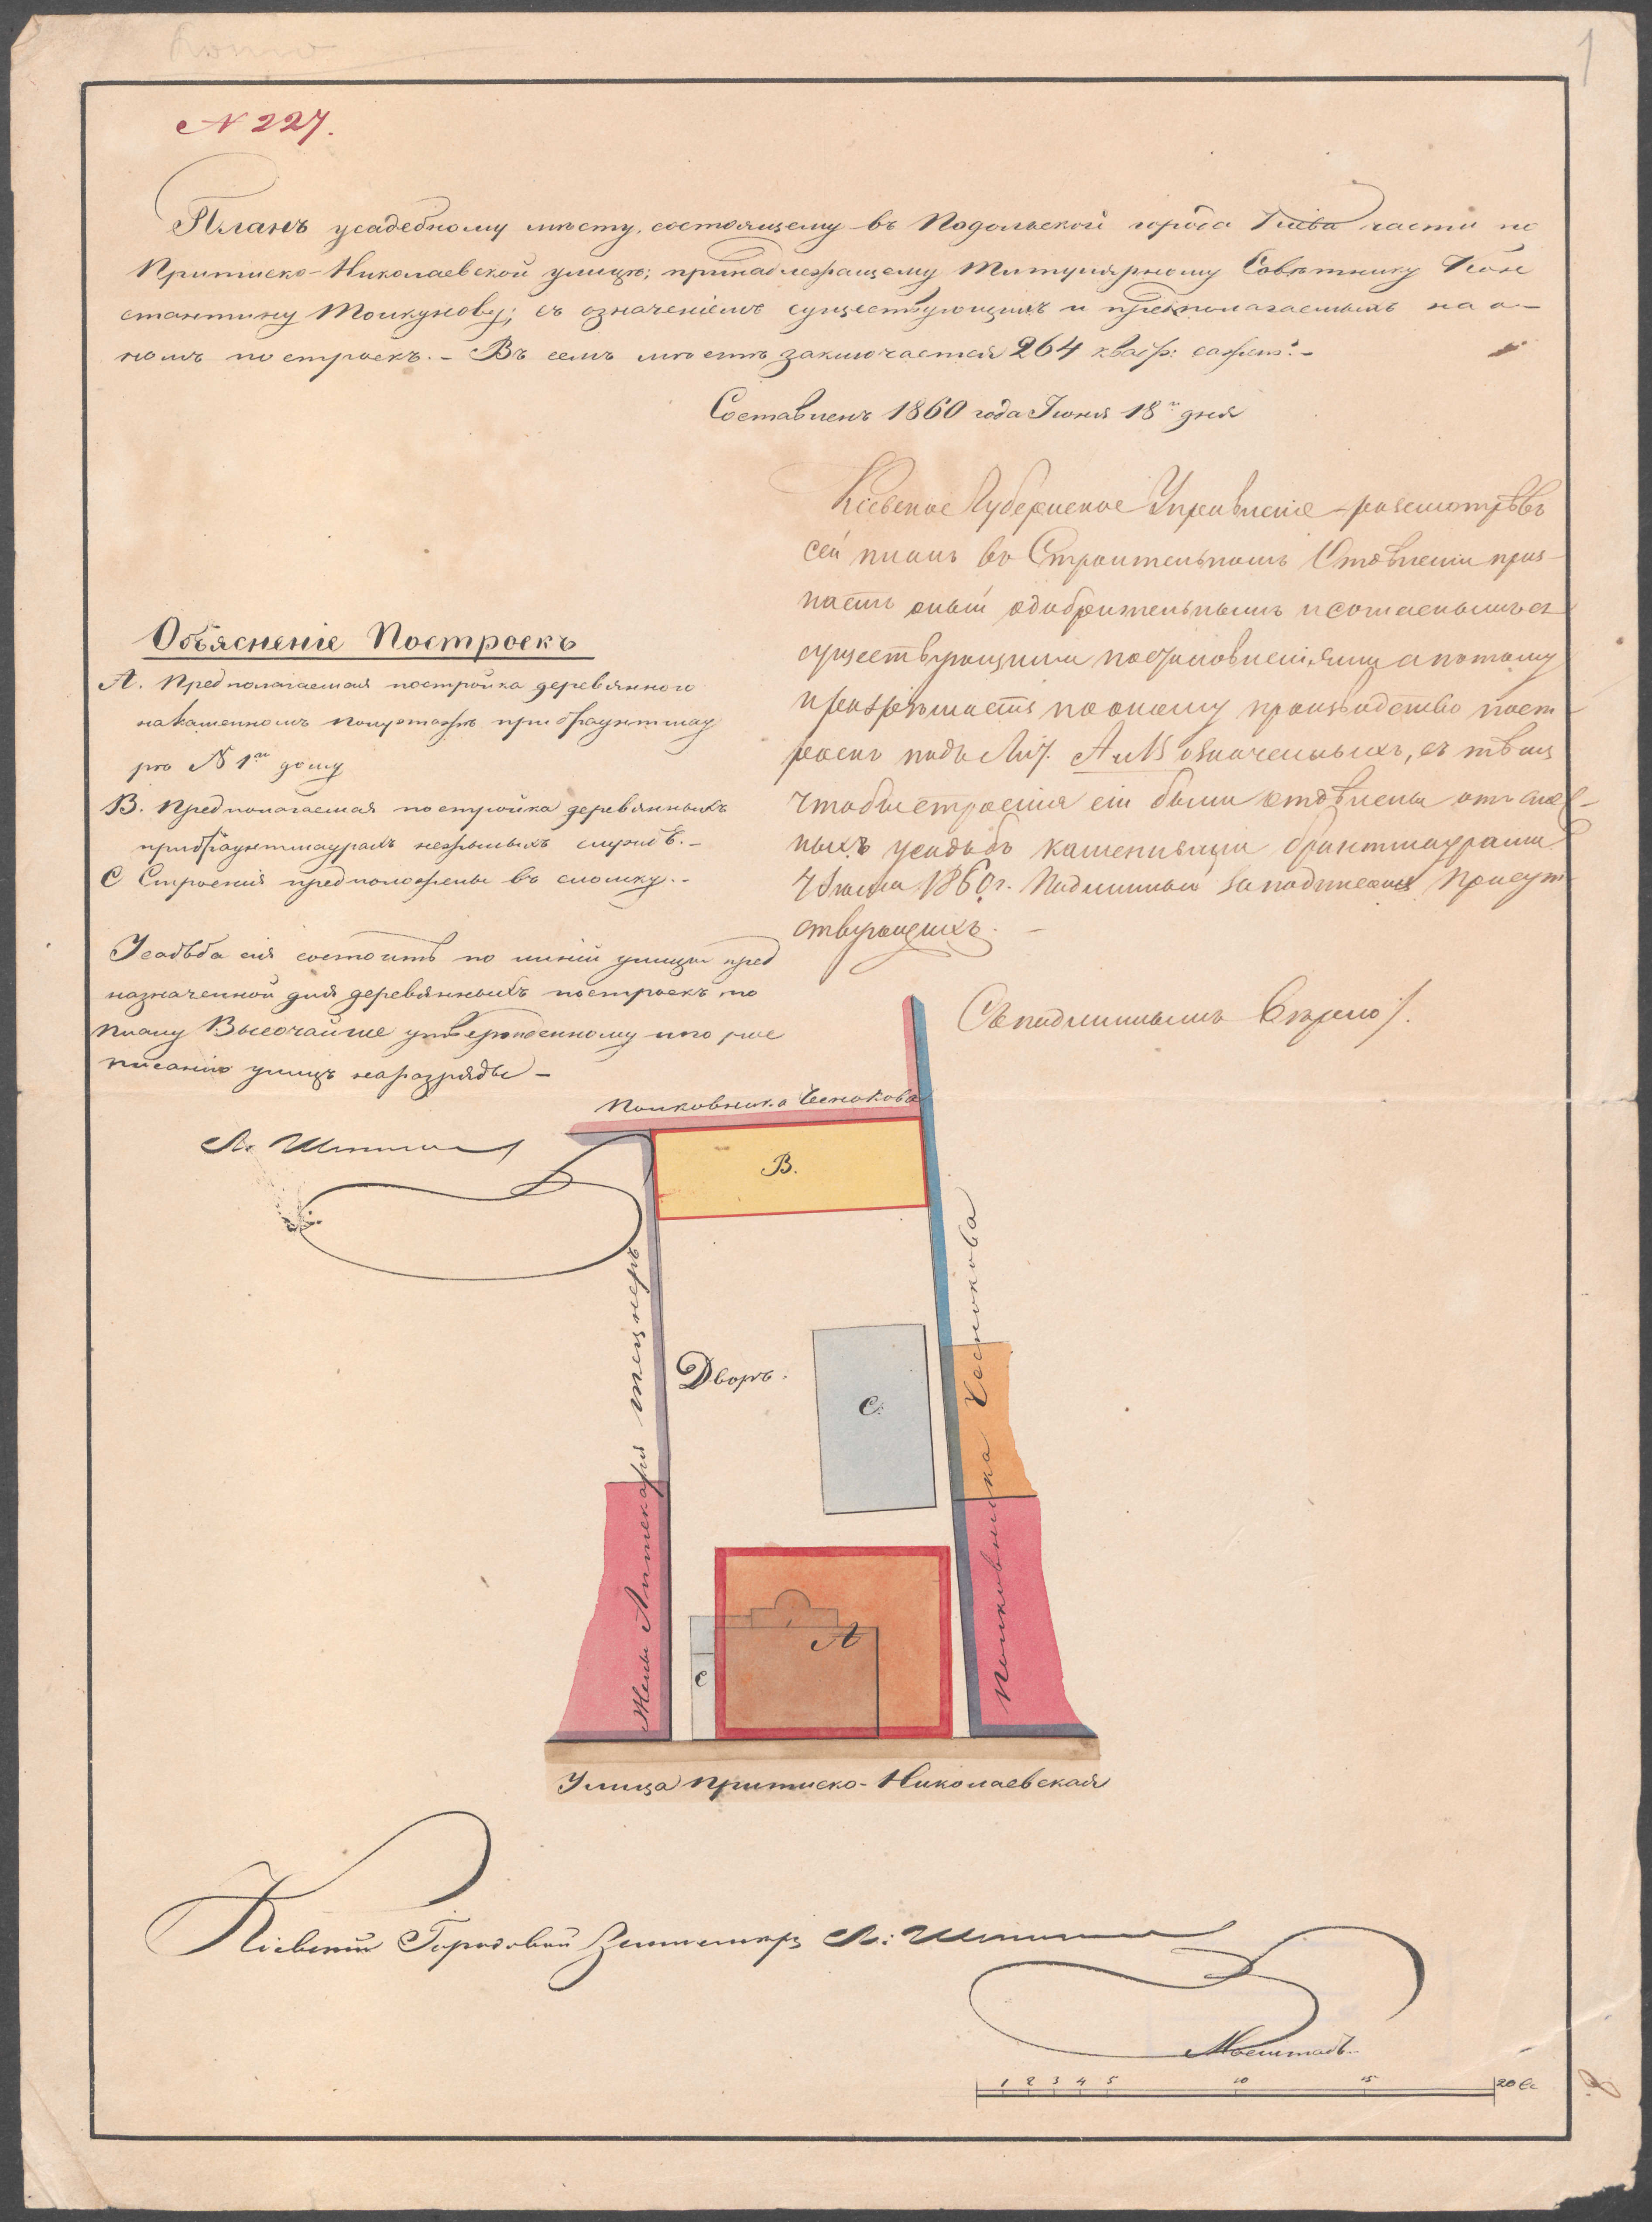 Копія
1
N 227.
Планъ усадебному мѣсту, состоящему въ Подольской города Кіева части по
Притиско-Николаевской улицѣ; принадлежащему Титулярному Совѣтнику Кон
стантину Толкунову; съ означеніемъ существующихъ и предполагаемыхъ на о-
номъ построекъ. - Въ семъ мѣстѣ заключается 264 квадр: сажен: -
Составленъ 1860 года Іюня 18го дня
Кіевское Губернское Управленіе разсмотрѣвъ
сей планъ во Строительномъ Отдѣленіи приз-
наетъ оный одобрительнымъ и согласнымъ съ
существующими постановленіями а потому
и разрѣшаетъ по оному производство пост-
роекъ подъ Лит. А и В означенныхъ, съ тѣмъ
чтобы строенія сіи были отдѣлены отъ смеж-
ныхъ усадьбъ каменными брантмаурами
Іюля 1860 г. Подлинный за подписомъ Присут-
ствующихъ. -
Съ подлиннымъ вѣрно /.
Объясненіе Построекъ
А. Предполагаемая постройка деревянного
на каменномъ полуэтажѣ при брауктмау
рѣ N 1го дому
В. Предполагаемая постройка деревянныхъ
при брауктмаурахъ нежилыхъ службъ. -
С Строенія предположены въ сломку. -
Усадьба сія состоитъ по линіи улицы пред
назначенной для деревянныхъ построекъ по
плану Высочайше утвержденному и по рос
писанію улицъ на разряды -
Полковника Чеснокова
В.
Дворъ.
С.
А
С
Жены Аптекаря
Полковника Чеснокова
Улица Притиско-Николаевская
Кіевскій Городовой Землемѣръ
Масштабъ.
1 2 3 4 5 10 15 20 Са